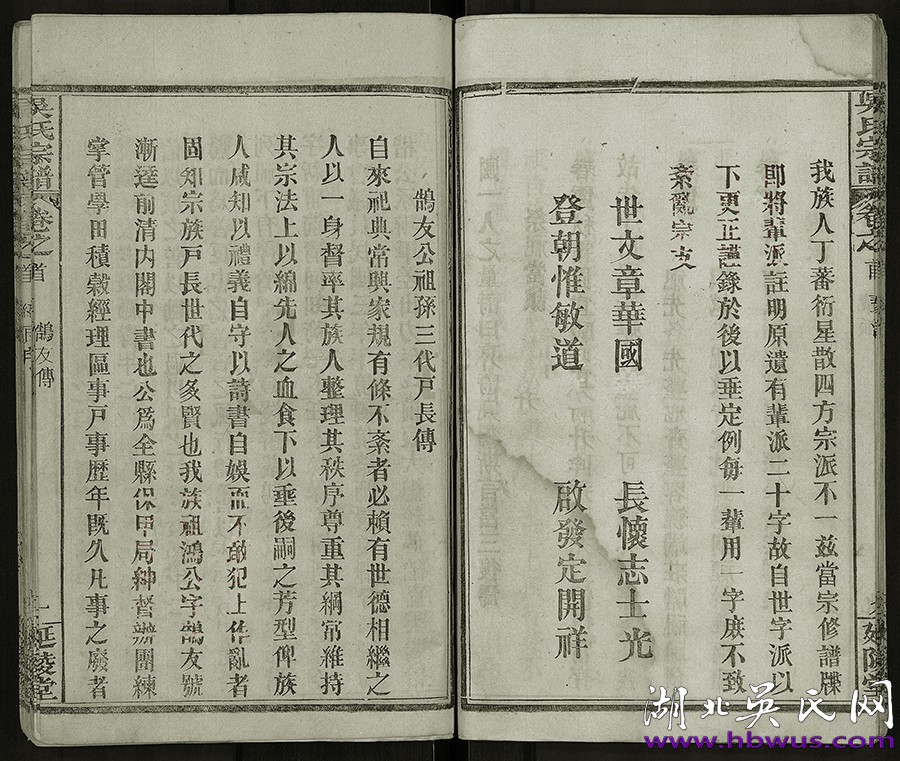 我族人丁蕃衍星散四方宗派不一茲當宗修譜牒
即將輩派註明原遺有輩派二十字故自世字派以
下更正謹錄於後以垂定例每一輩用一字庶不致
紊亂宗支
世文章華國 長懷志士光
登朝惟敏道 啟發定開祥
吳氏宗譜 卷之首 鵠友傳 一 延陵堂
鵠友公祖孫三代戶長傳
自來祀典常興家規有條不紊者必賴有世德相繼之
人以一身督率其族人整理其秩序尊重其綱常維持
其宗法上以綿先人之血食下以垂後嗣之芳型俾族
人咸知以禮義自守以詩書自娛而不敢犯上作亂者
固知宗族戶長世代之多賢也我族祖鴻公字鵠友號
漸逵前清內閣中書也公爲全縣保甲局紳督辦團練
掌管學田積穀經理區事戶事歷年既久凡事之廢者
湖北吳氏网
www.hbwus.com